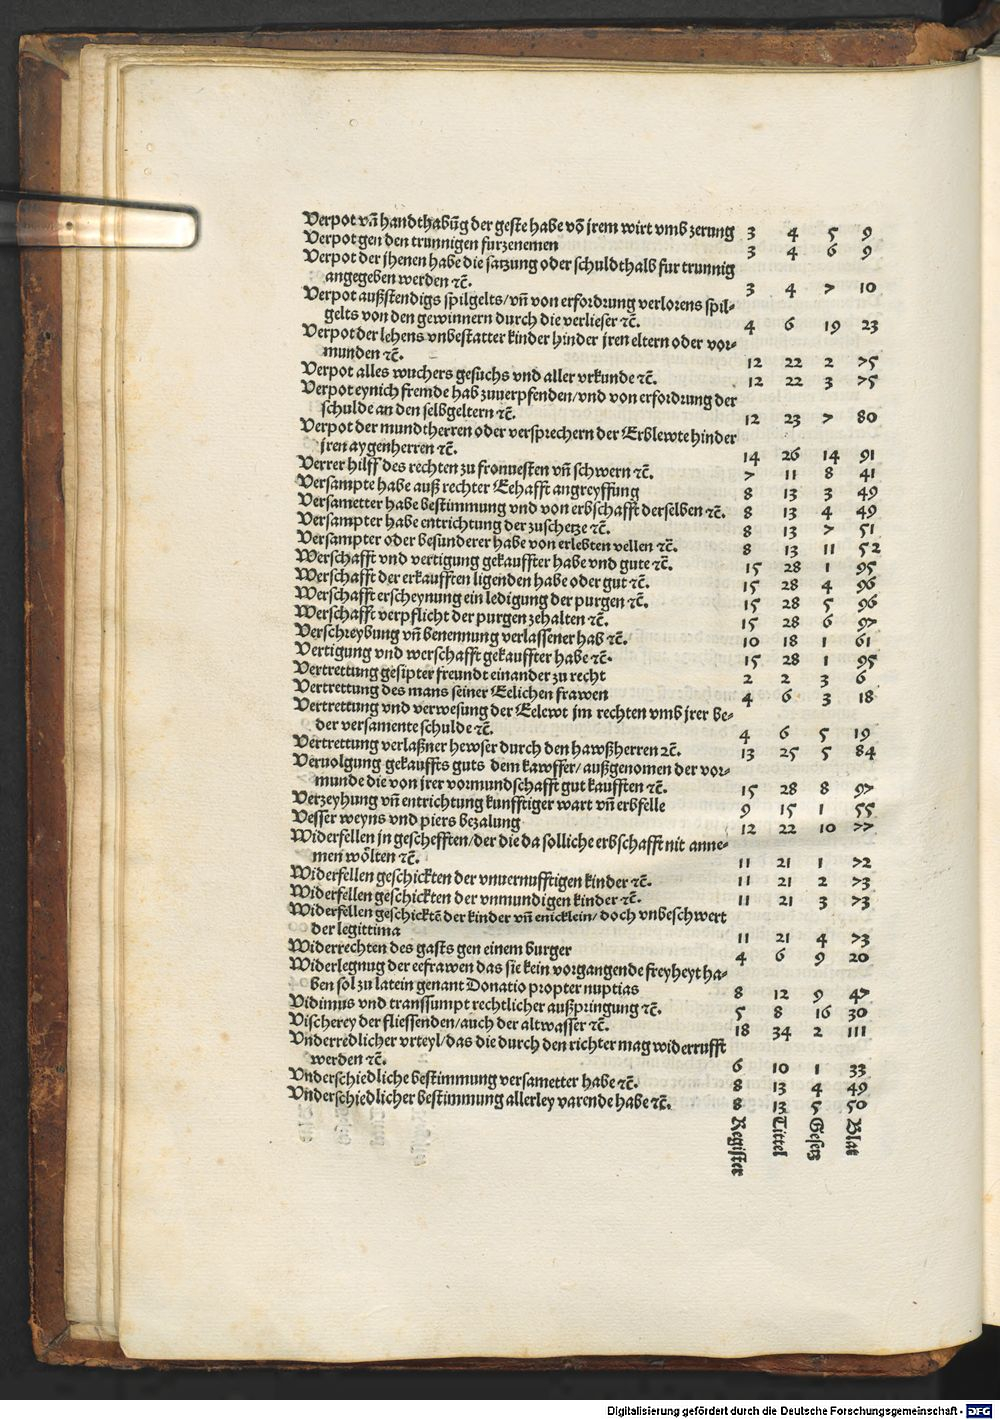 Verpot vn̄ handthabūg der geste habe vō jrem wirt vmb zerung 3 4 5 9
Verpot gen den trunnigen furzenemen 3 4 6 9
Verpot der jhenen habe die satzung oder schuldthalb fur trunnig
angegeben werden ⁊c̄. 3 4 7 10
Verpot außstendigs spilgelts/ vn̄ von erfordrung verlorens spil⸗
gelts von den gewinnern durch die verlieser ⁊c̄. 4 6 19 23
Verpot der lehens vnbestatter kinder hinder jren eltern oder vor⸗
munden ⁊c̄. 12 22 2 75
Verpot alles wuchers gesuchs vnd aller vrkunde ⁊c̄. 12 22 3 75
Verpot eynich fremde hab zuuerpfenden/ vnd von erfordrung der
schulde an den selbgeltern ⁊c̄. 12 23 7 80
Verpot der mundtherren oder versprechern der Erblewte hinder
jren aygenherren ⁊c̄. 14 26 14 91
Verrer hilff des rechten zu fronuesten vn̄ schwern ⁊c̄. 7 11 8 41
Versampte habe auß rechter Eehafft angreyffung 8 13 3 49
Versametter habe bestimmung vnd von erbschafft derselben ⁊c̄. 8 13 4 49
Versampter habe entrichtung der zuschetze ⁊c̄. 8 13 7 51
Versampter oder besunderer habe von erlebten vellen ⁊c̄. 8 13 11 52
Werschafft vnd vertigung gekauffter habe vnd gute ⁊c̄. 15 28 1 95
Werschafft der erkaufften ligenden habe oder gut ⁊c̄. 15 28 4 96
Werschafft erscheynung ein ledigung der purgen ⁊c̄. 15 28 5 96
Werschafft verpflicht der purgen zehalten ⁊c̄. 15 28 6 97
Verschreybung vn̄ benennung verlassener hab ⁊c̄. 10 18 1 61
Vertigung vnd werschafft gekauffter habe ⁊c̄. 15 28 1 95
Vertrettung gesipter freundt einander zu recht 2 2 3 6
Vertrettung des mans seiner Eelichen frawen 4 6 3 18
Vertrettung vnd verwesung der Eelewt jm rechten vmb jrer be⸗
der versamente schulde ⁊c̄. 4 6 5 19
Vertrettung verlaßner hewser durch den hawßherren ⁊c̄. 13 25 5 84
Veruolgung gekauffts guts dem kawffer/ außgenomen der vor⸗
munde die von jrer vormundschafft gut kaufften ⁊c̄. 15 28 8 97
Verzeyhung vn̄ entrichtung kunfftiger wart vn̄ erbfelle 9 15 1 55
Vesser weyns vnd piers bezalung 12 22 10 77
Widerfellen jn geschefften/ der die da solliche erbschafft nit anne⸗
men wölten ⁊c̄. 11 21 1 72
Widerfellen geschickten der vnuernufftigen kinder ⁊c̄. 11 21 2 73
Widerfellen geschickten der vnmundigen kinder ⁊c̄. 11 21 3 73
Widerfellen geschicktē der kinder vn̄ enicklein/ doch vnbeschwert
der legittima 11 21 4 73
Widerrechten des gasts gen einem burger 4 6 9 20
Widerlegnug der eefrawen das sie kein vorgangende freyheyt ha⸗
ben sol zu latein genant Donatio propter nuptias 8 12 9 47
Vidimus vnd transsumpt rechtlicher außpringung ⁊c̄. 5 8 16 30
Vischerey der fliessenden/ auch der altwasser ⁊c̄. 18 34 2 111
Vnderredlicher vrteyl/ das die durch den richter mag widerrufft
werden ⁊c̄. 6 10 1 33
Vnderschiedliche bestimmung versametter habe ⁊c̄. 8 13 4 49
Vnderschiedlicher bestimmung allerley varende habe ⁊c̄. 8 13 5 50
Register Tittel Gesetz Blat
Digitalisierung gefördert durch die Deutsche Forschungsgemeinschaft - DFG